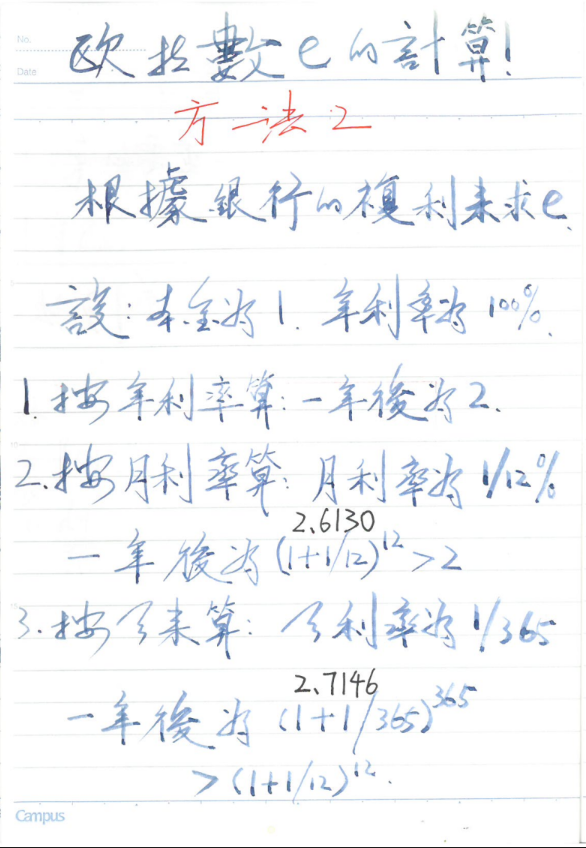 No.
Date
欧拉數e的計算!
方法2
根據銀行的複利來求e.
設:本金为1.年利率为100%.
1.按年利率算:一年後为2.
2.按月利率算:月利率为1/12%
2.6130
一年後为(1+1/12)^12>2
3.按天來算:天利率为1/365
2.7146
一年後为(1+1/365)^365
>(1+1/12)^12.
Campus